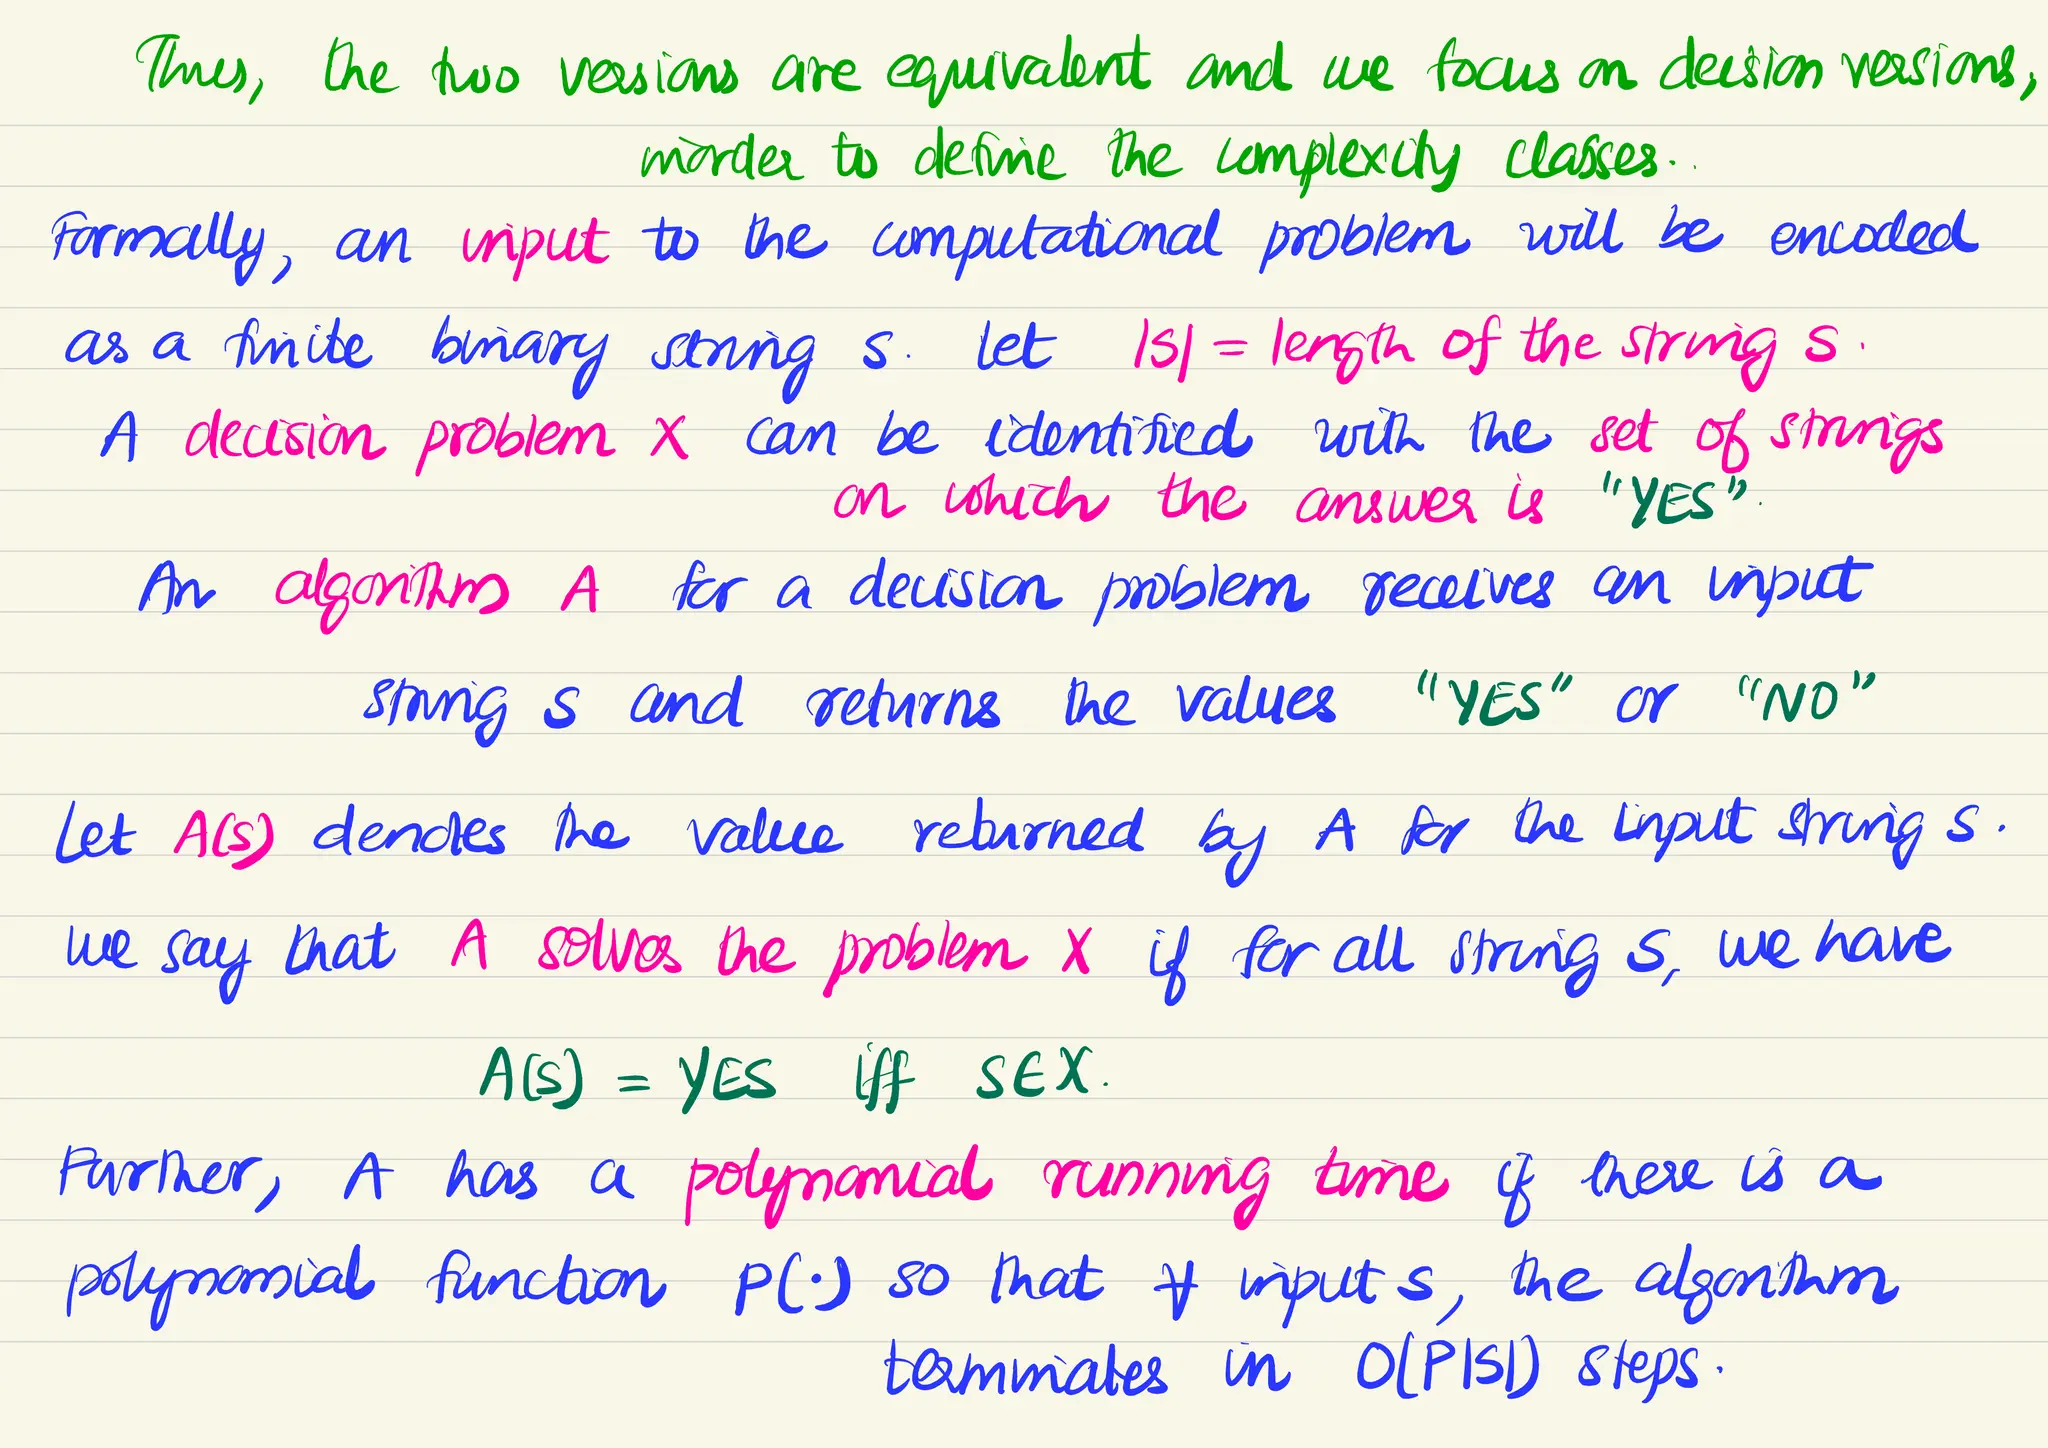 Thus, the two versions are equivalent and we focus on decision versions,
inorder to define the complexity classes.
Formally, an input to the computational problem will be encoded
as a finite binary string s. Let |s| = length of the string s.
A decision problem X can be identified with the set of strings
on which the answer is "YES".
An algorithm A for a decision problem receives an input
string s and returns the values "YES" or "NO"
Let A(s) denotes the value returned by A for the input string s.
We say that A solves the problem X if for all string s, we have
A(s) = YES iff s∈X.
Further, A has a polynomial running time if there is a
polynomial function P(·) so that ∀ input s, the algorithm
terminates in O(P|s|) steps.